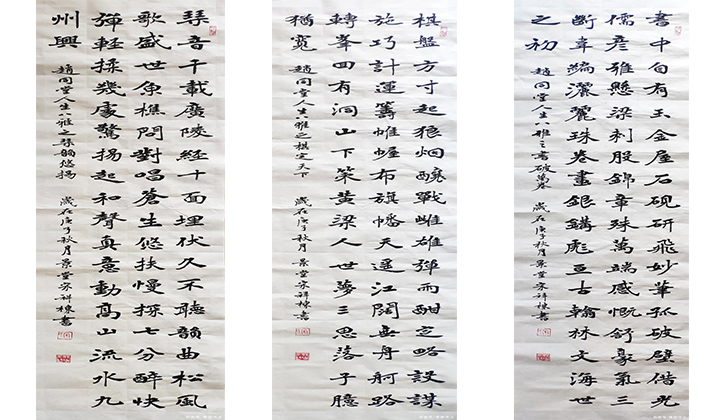 琴音千載廣陵經十面埋伏久不聽韻曲松風
歌盛世魚樵問對唱蒼生悠扶慢操七分醉快
彈輕揉幾處驚揚起和聲真意動高山流水九
州興 趙同堂人生八雅之琴韻悠揚 歲在庚子秋月景堂宋祥棟書
棋盤方寸起狼烟鏖戰雌雄彈而酣定略設謀
施巧計運籌帷幄布旗幡天遥江闊無舟舸路
轉峯回有洞山下築黄梁人世夢三思落子臆
猶寬 趙同堂人生八雅之棋定天下 歲在庚子秋月景堂宋祥棟書
書中自有玉金屋石硯研飛妙筆孤破壁偕光
儒彥雖懸梁刺股錦章殊萬端感慨舒豪氣三
斷韋編灑麗珠卷畫銀鉤彪亘古翰林文海世
之初 趙同堂人生八雅之書破萬卷 歲在庚子秋月景堂宋祥棟書